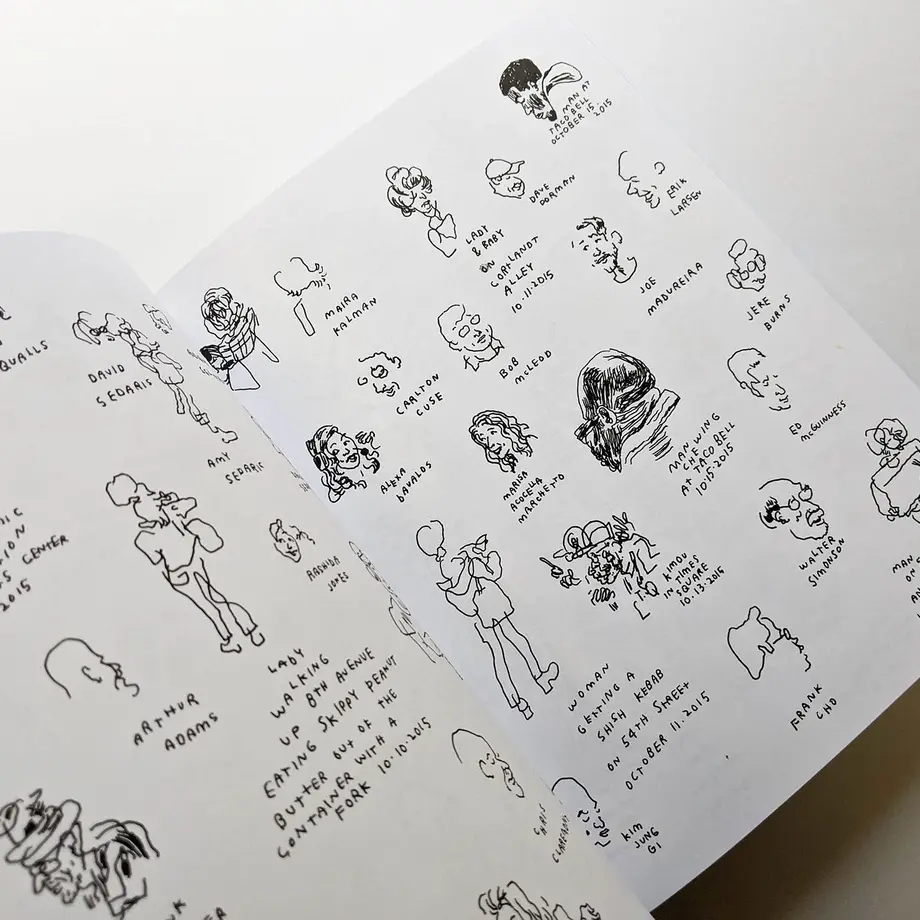 QUALLS
DAVID
SEDARIS
AMY
SEDARIS
CENTER
2015
RASHIDA
JONES
ARTHUR
ADAMS
LADY
WALKING
UP 8TH AVENUE
EATING SKIPPY PEANUT
BUTTER OUT OF THE
CONTAINER WITH A
FORK 10·10·2015
MAN AT
TACO BELL
OCTOBER 15,
2015
LADY
& BABY
ON
CORTLANDT
ALLEY
10·11·2015
DAVE
DORMAN
ERIK
LARSEN
MAIRA
KALMAN
JOE
MADUREIRA
JERE
BURNS
CARLTON
CUSE
BOB
McLEOD
ALEXA
DAVALOS
MARISA
ACOCELLA
MARCHETTO
MAN WING
CHEWING
AT TACO BELL
10·15·2015
ED
McGUINNESS
KIMOU
IN TIMES
SQUARE
10·13·2015
WALTER
SIMONSON
MAN
ON
WOMAN
GETTING A
SHISH KEBAB
ON 54TH STREET
OCTOBER 11·2015
FRANK
CHO
KIM
JUNG
GI